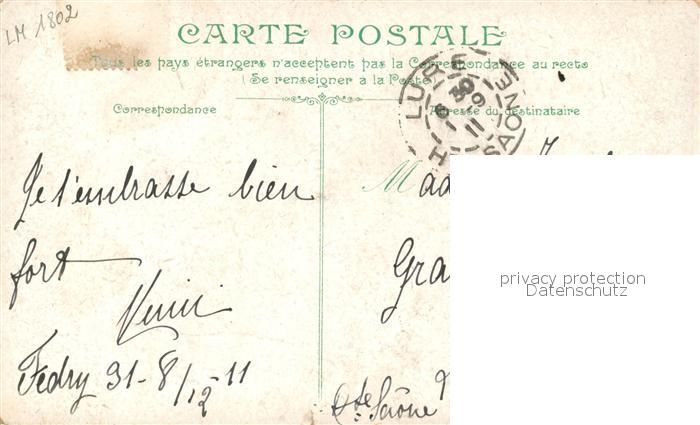 LM 1802
CARTE POSTALE
Tous les pays étrangers n'acceptent pas la Correspondance au recto
(Se renseigner à la Poste)
Correspondance
Adresse du destinataire
LURE
H SAÔNE
Je t'embrasse bien
fort
Fédry 31-8/12-11
Mad
Gra
Hte Saône
privacy protection
Datenschutz